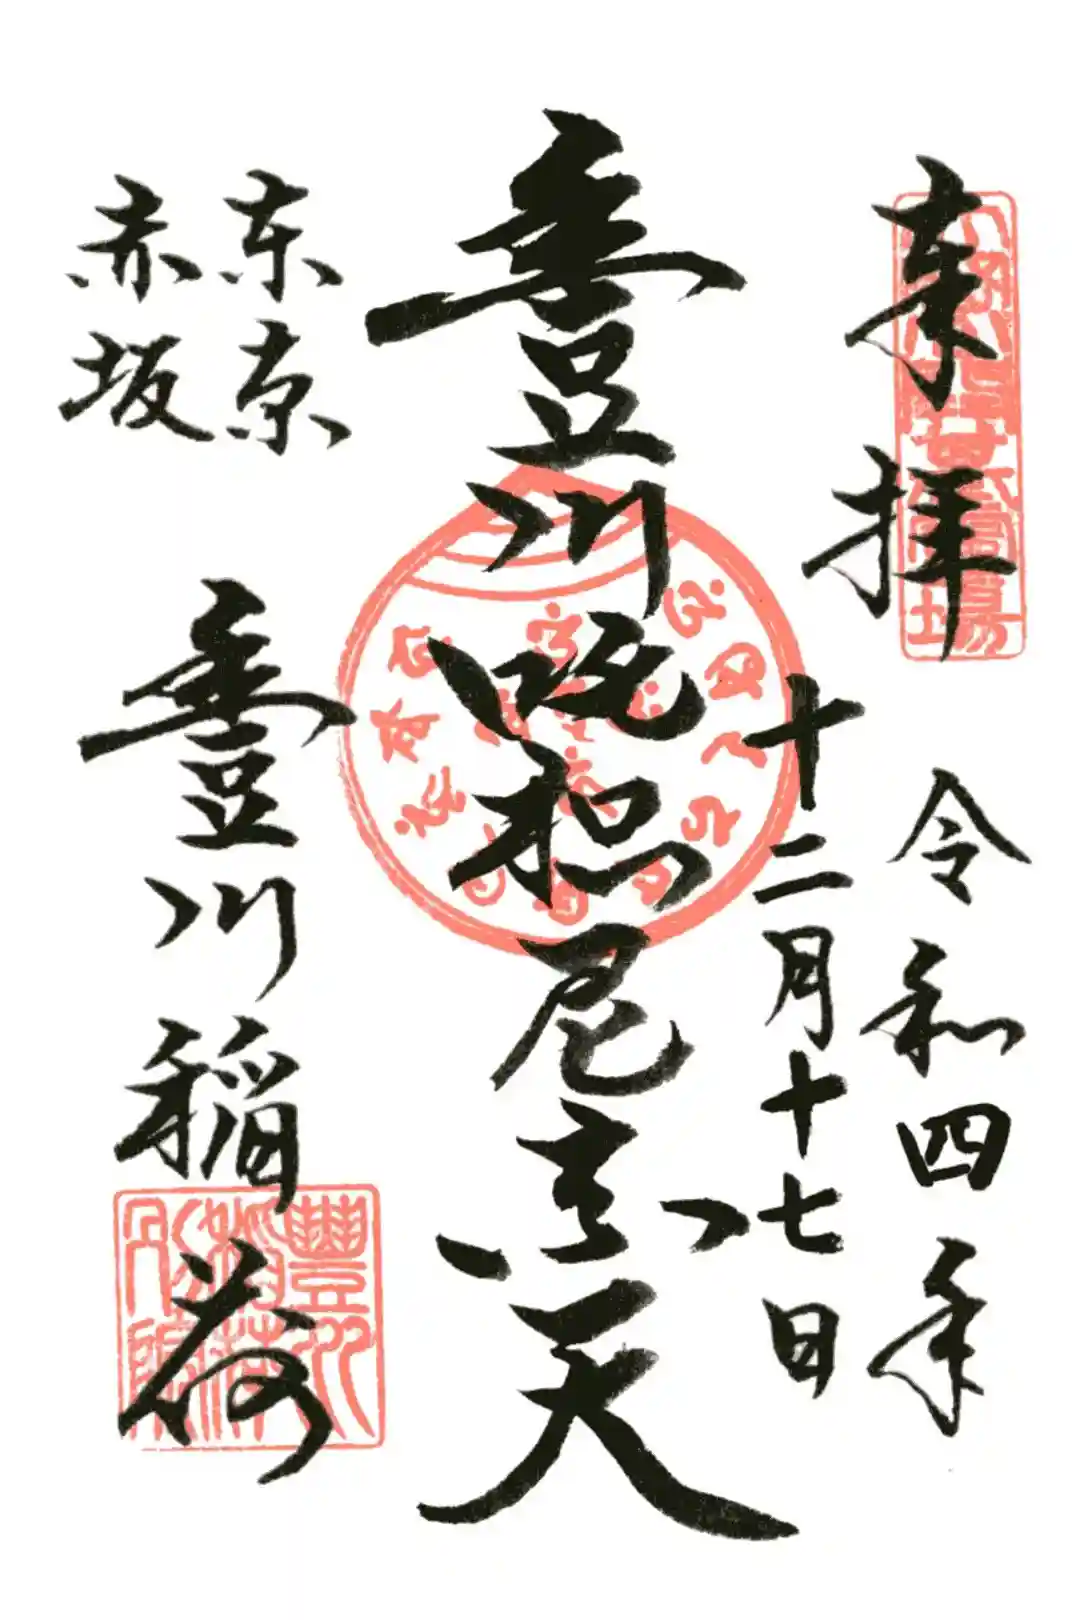 奉拝
令和四年
十二月十七日
豊川吒枳尼真天
東京
赤坂
豊川稲荷
豐川
稲荷
別院